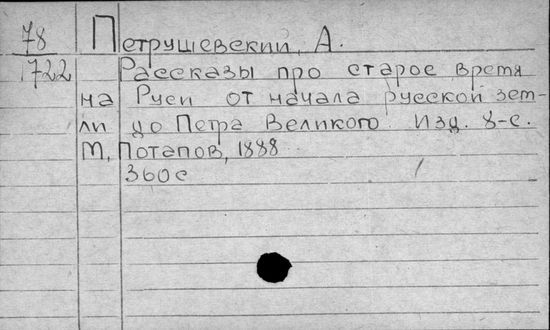 78 Петрушевский, А.
1722 Рассказы про старое время
на Руси от начала русской зем-
ли до Петра Великого. Изд. 8-е.
М, Потапов, 1888
360 с